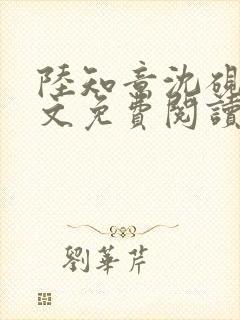 陸知章沈硯
文免費閱讀
劉華芹